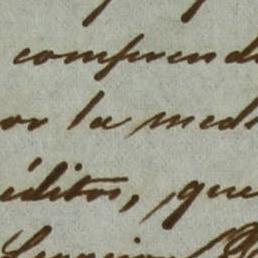 comprend
or la med
éditos, que